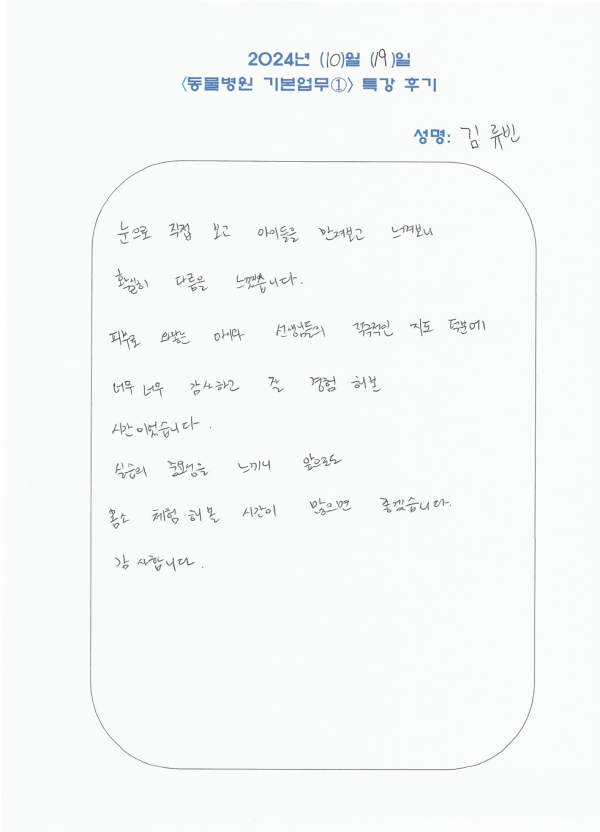 2024년 (10)월 (19)일
<동물병원 기본업무①> 특강 후기
성명: 김 류빈
눈으로 직접 보고 아이들을 만져보고 느껴보니
확실히 다름을 느꼈습니다.
피부로 와닿는 아이와 선생님들의 적극적인 지도 덕분에
너무 너무 감사하고 잘 경험 해본
시간이었습니다.
실습의 중요성을 느끼니 앞으로도
몸소 체험 해볼 시간이 많으면 좋겠습니다.
감사합니다.